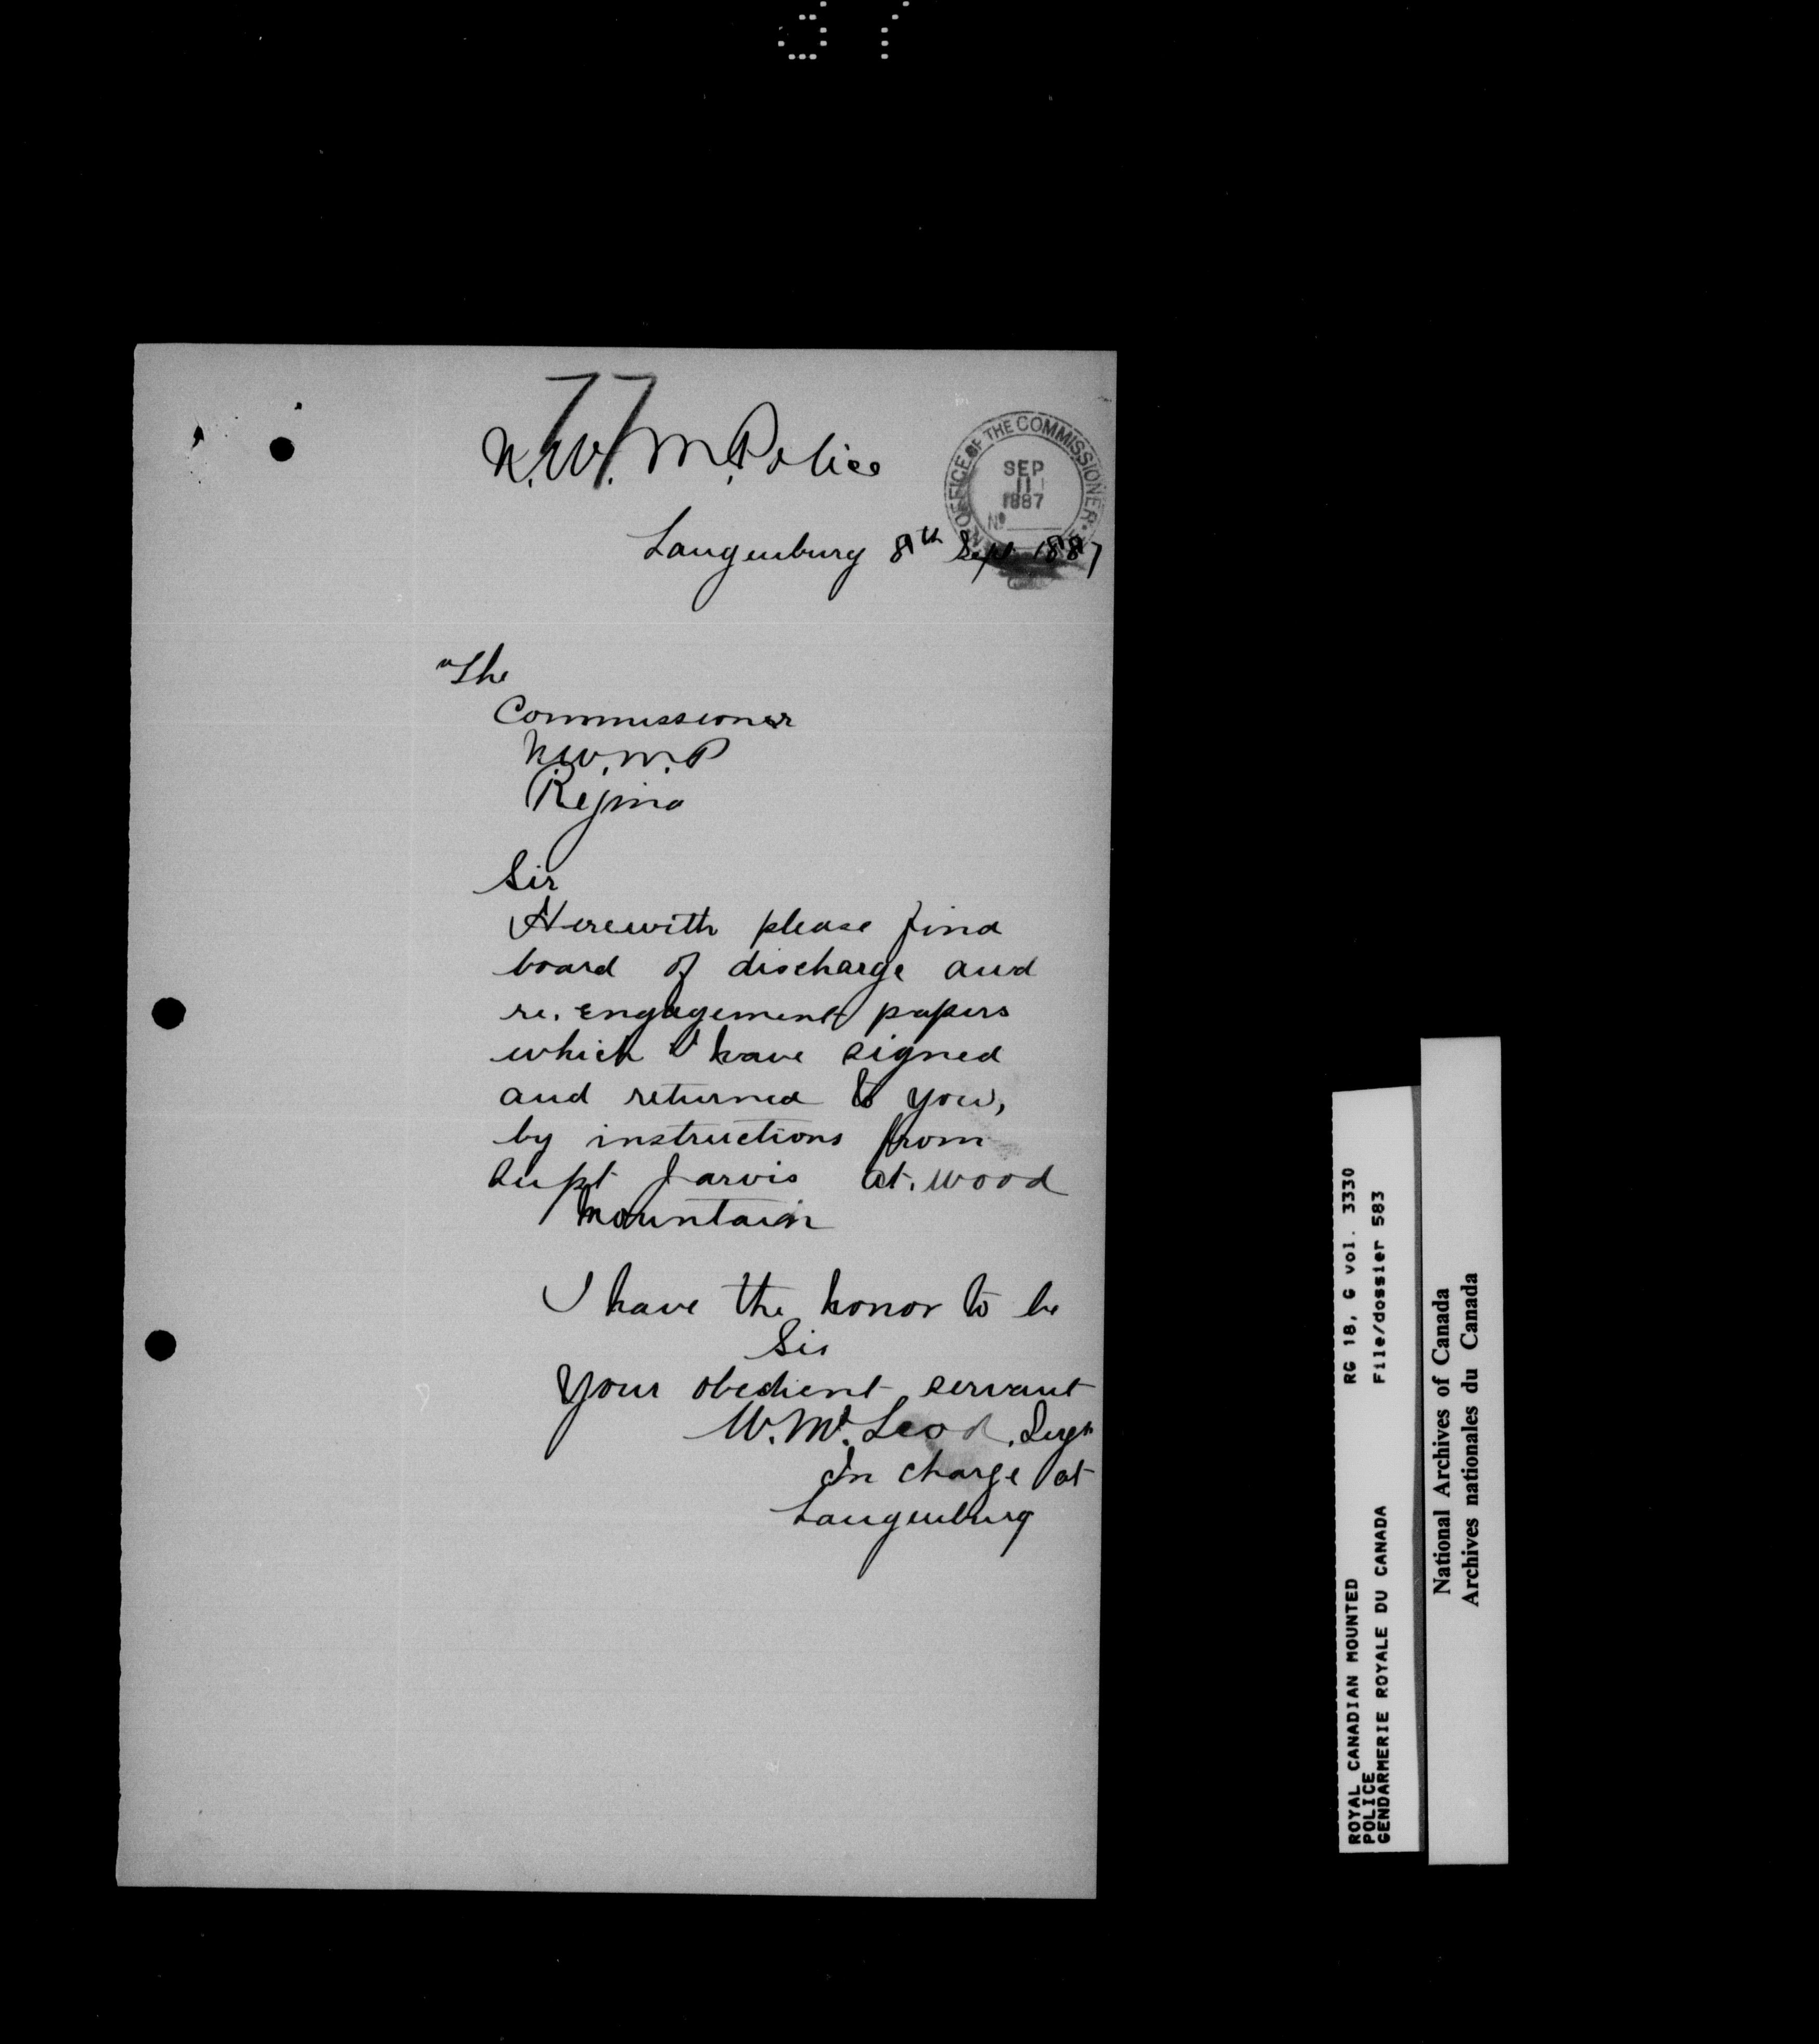 77
N.W.M.Police
OFFICE OF THE COMMISSIONER
SEP
11
1887
No
Langenburg 8th Sept 1887
The
Commissioner
N.W.M.P
Regina
Sir
Herewith please find
board of discharge and
re.engagement papers
which I have signed
and returned to you,
by instructions from
Supt Jarvis at. Wood
Mountain
I have the honor to be
Sir
Your obedient servant
W. Mc.Leod, Sergt
In charge at
Langenburg
ROYAL CANADIAN MOUNTED
POLICE
GENDARMERIE ROYALE DU CANADA
RG 18, G vol. 3330
File/dossier 583
National Archives of Canada
Archives nationales du Canada